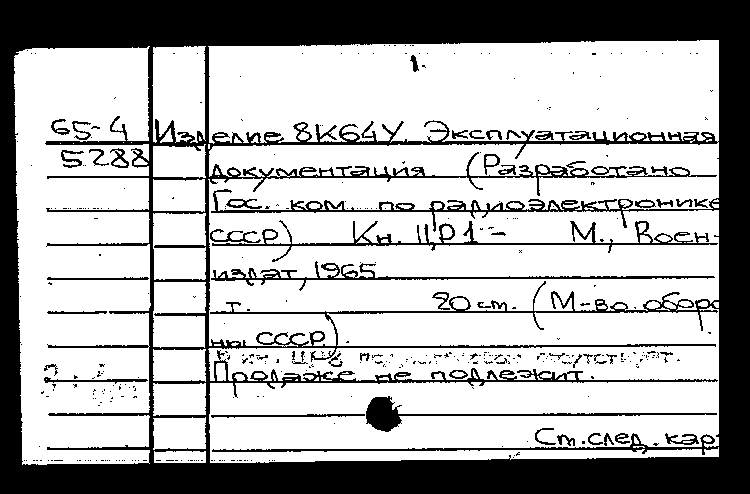 1.
65-4 Изделие 8К64У. Эксплуатационная
5288 документация. (Разработано
Гос. ком. по радиоэлектронике
СССР) Кн. II,Р1- М., Воен-
издат, 1965.
т. 20 см. (М-во оборо
ны СССР).
отсутствует.
Продаже не подлежит.
См.след.кар